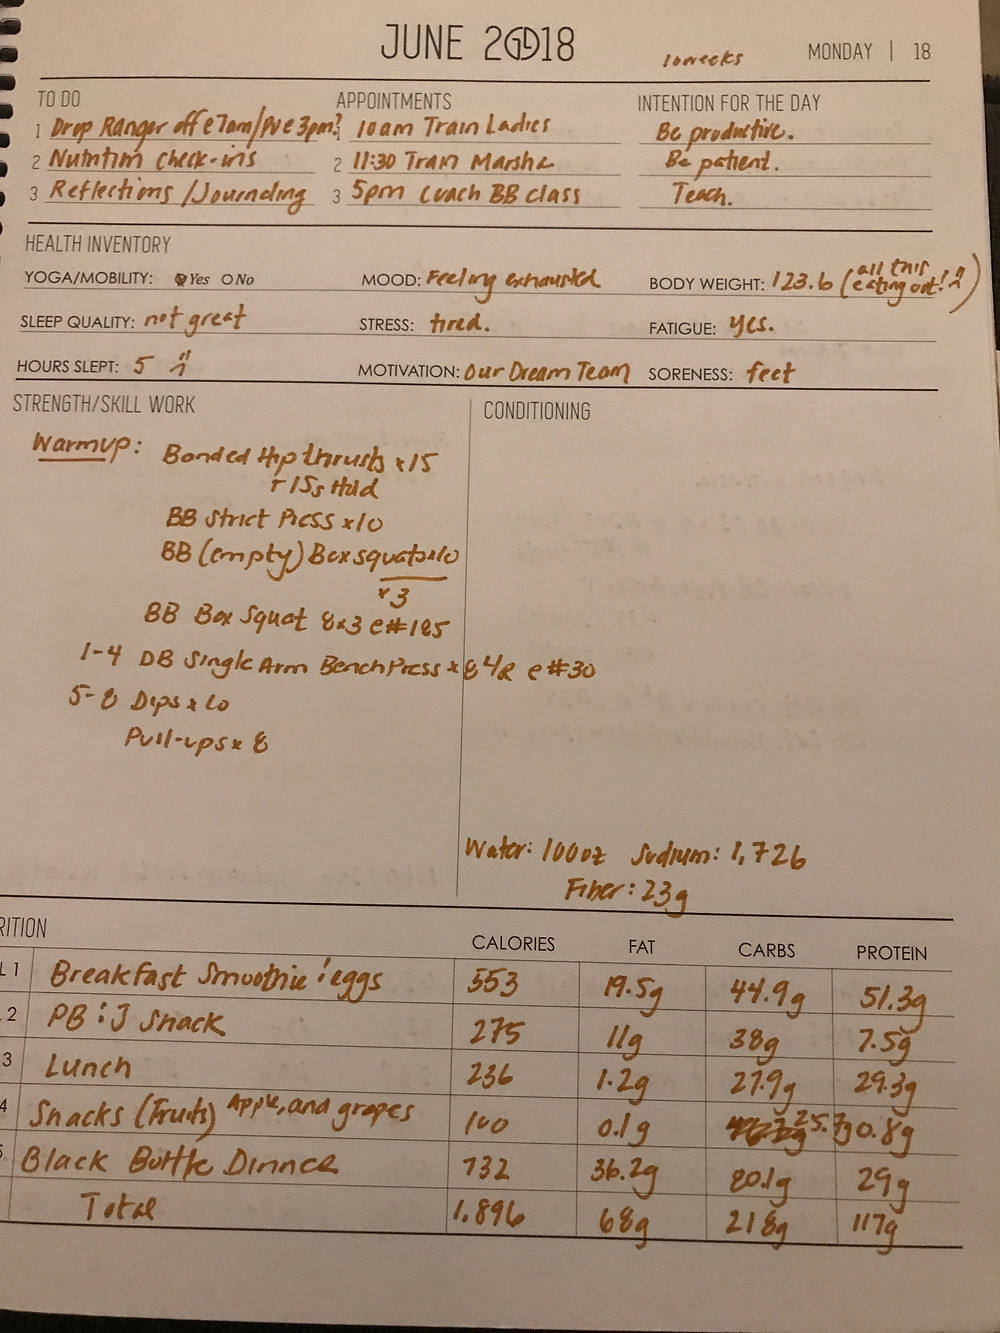 JUNE 2018
10 weeks
MONDAY | 18
TO DO
1 Drop Ranger off @ 7am/PU @ 3pm?
2 Nutrition check-ins
3 Reflections/Journaling
APPOINTMENTS
1 10am Train Ladies
2 11:30 Train Marsha
3 5pm Coach BB class
INTENTION FOR THE DAY
Be productive.
Be patient.
Teach.
HEALTH INVENTORY
YOGA/MOBILITY: Yes No
MOOD: Feeling exhausted
BODY WEIGHT: 123.6 (all this eating out!!)
SLEEP QUALITY: not great
STRESS: tired.
FATIGUE: yes.
HOURS SLEPT: 5
MOTIVATION: Our Dream Team
SORENESS: feet
STRENGTH/SKILL WORK
Warmup: Banded Hip thrusts x15
+ 15s Hold
BB Strict Press x10
BB (empty) Box squats x10
x3
BB Box Squat 8x3 @ #185
1-4 DB Single Arm Bench Press x 8 L/R @ #30
5-8 Dips x 10
Pull-ups x 8
CONDITIONING
Water: 100oz Sodium: 1,726
Fiber: 23g
RITION
CALORIES FAT CARBS PROTEIN
L 1 Breakfast Smoothie & eggs 553 19.5g 44.9g 51.3g
2 PB & J Snack 275 11g 38g 7.5g
3 Lunch 236 1.2g 27.9g 29.3g
4 Snacks (Fruits) Apple, and grapes 100 0.1g 25.7g 0.8g
5 Black Bottle Dinner 732 36.2g 80.1g 29g
Total 1,896 68g 218g 117g